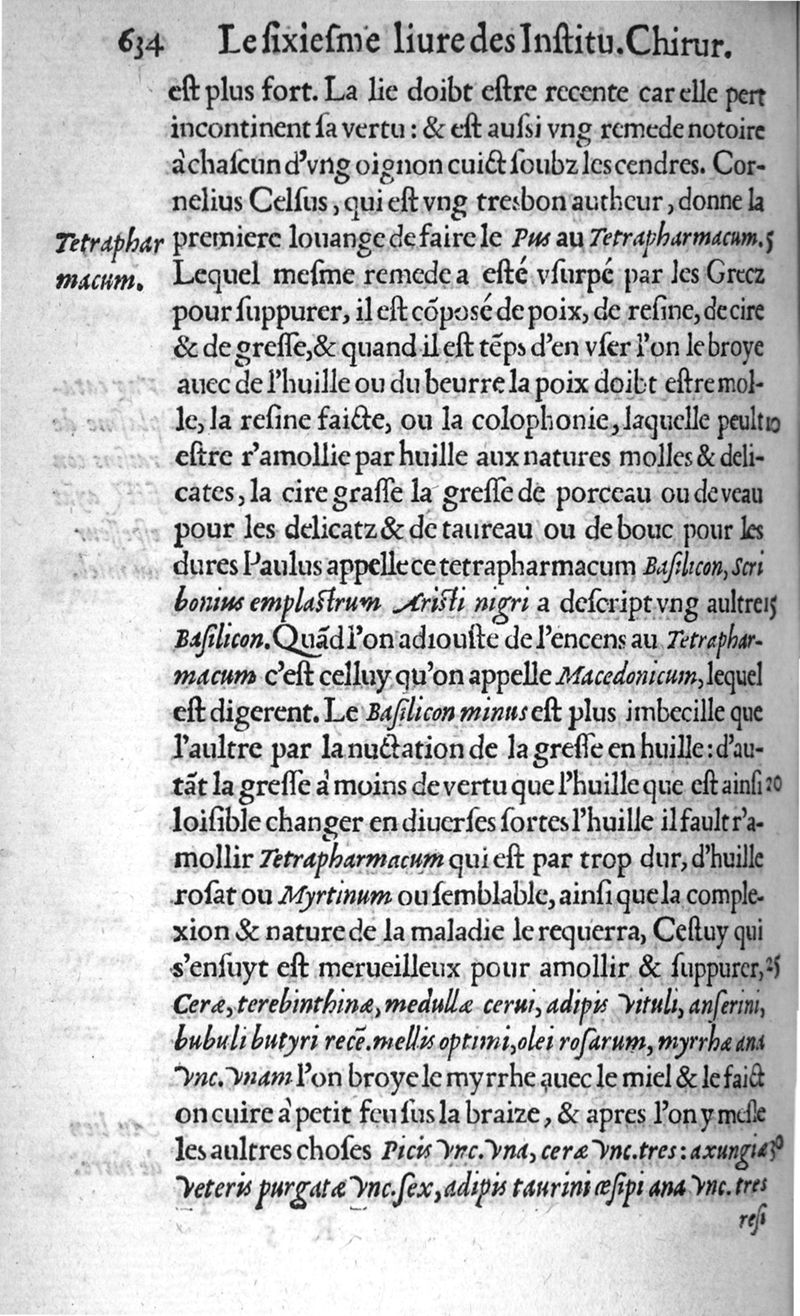 634 Le ſixieſme liure des Inſtitu. Chirur.
eſt plus fort. La lie doibt eſtre recente car elle pert
incontinent ſa vertu : & eſt auſsi vng remede notoire
à chaſcun d'vng oignon cuict ſoubz les cendres. Cor-
nelius Celſus, qui eſt vng tresbon autheur, donne la
Tetraphar premiere louange de faire le Pus au Tetrapharmacum. 5
macum. Lequel meſme remede a eſté vſurpé par les Grecz
pour ſuppurer, il eſt cõposé de poix, de reſine, de cire
& de greſſe,& quand il eſt tẽps d'en vſer l'on le broye
auec de l'huille ou du beurre la poix doibt eſtre mol-
le, la reſine faicte, ou la colophonie, laquelle peult 10
eſtre r'amollie par huille aux natures molles & deli-
cates, la cire graſſe la greſſe de porceau ou de veau
pour les delicatz & de taureau ou de bouc pour les
dures Paulus appelle ce tetrapharmacum Baſilicon, Scri
bonius emplaſtrum Ariſti nigri a deſcript vng aultre 15
Baſilicon. Quãd l'on adiouſte de l'encens au Tetraphar-
macum c'eſt celluy qu'on appelle Macedonicum, lequel
eſt digerent. Le Baſilicon minus eſt plus imbecille que
l'aultre par la nuctation de la greſſe en huille : d'au-
tãt la greſſe à moins de vertu que l'huille que eſt ainſi 20
loiſible changer en diuerſes ſortes l'huille il fault r'a-
mollir Tetrapharmacum qui eſt par trop dur, d'huille
roſat ou Myrtinum ou ſemblable, ainſi que la comple-
xion & nature de la maladie le requerra, Ceſtuy qui
s'enſuyt eſt merueilleux pour amollir & ſuppurer, 25
Ceræ, terebinthinæ, medullæ cerui, adipis vituli, anſerini,
bubuli butyri recẽ. mellis optimi, olei roſarum, myrrhæ ana
vnc. vnam l'on broye le myrrhe auec le miel & le faict
on cuire à petit feu ſus la braize, & apres l'on y meſle
les aultres choſes Picis vnc. vna, ceræ vnc. tres : axungiæ 30
veteris purgatæ vnc. ſex, adipis taurini œſipi ana vnc. tres
reſi